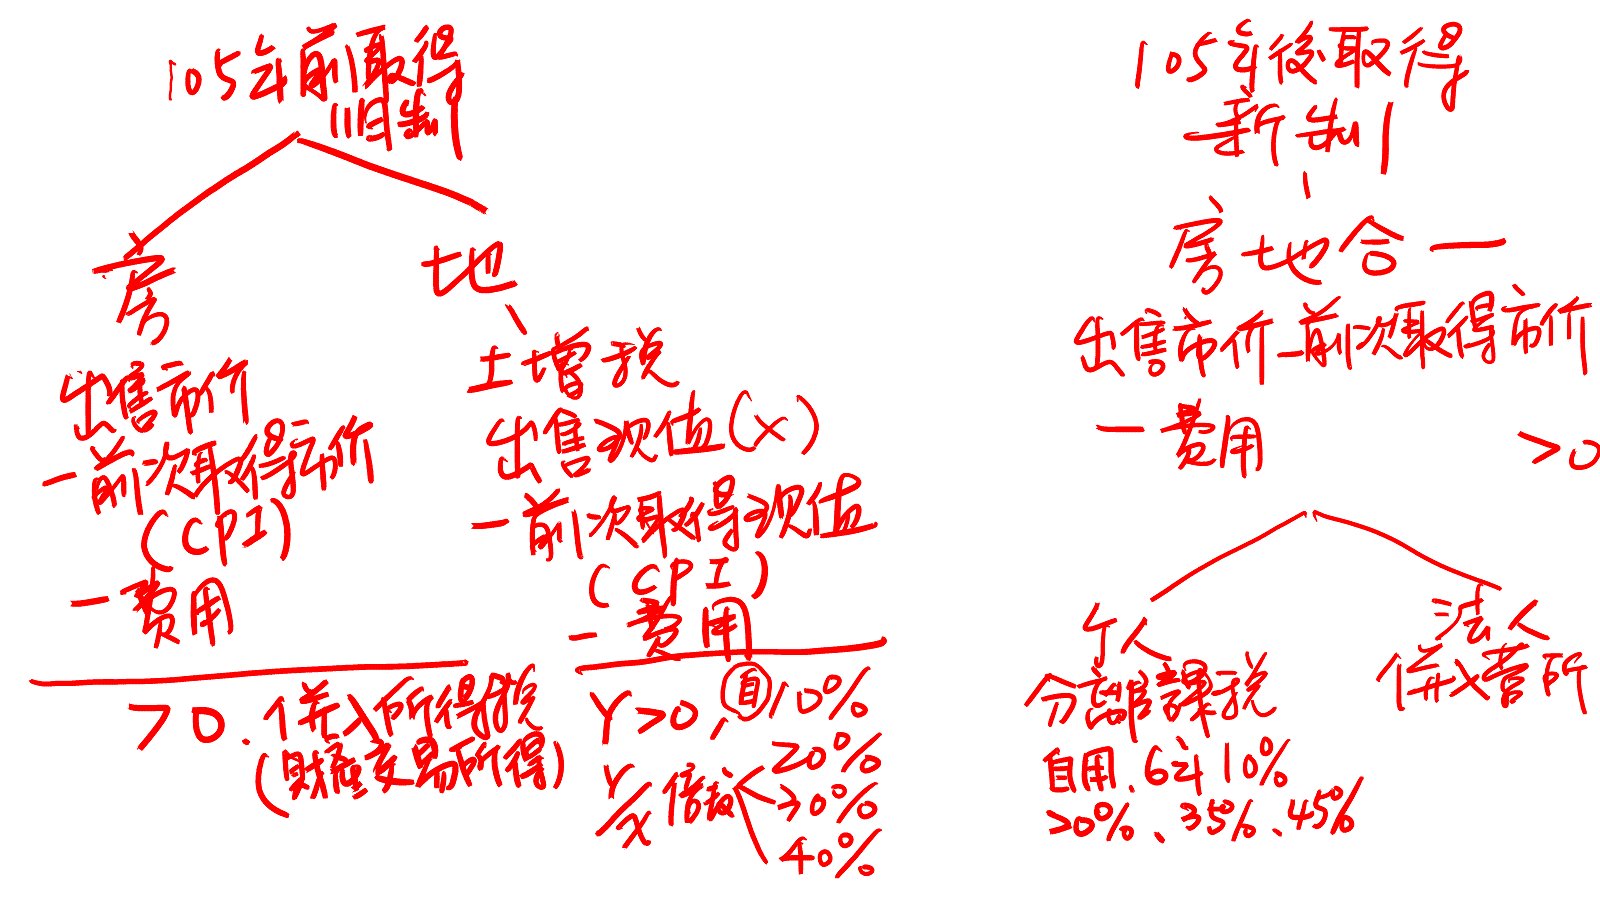 105年前取得
旧制
房
出售市价
-前次取得市价
(CPI)
-費用
>0.併入所得稅
(財產交易所得)
地
土增税
出售现值(x)
-前次取得现值
(CPI)
-費用
Y>0,自10%
Y/x倍数
20%
30%
40%
105年後取得
新制
房地合一
出售市价-前次取得市价
-費用 >0
个人
分離課税
自用、6年10%
20%、35%、45%
法人
併入营所